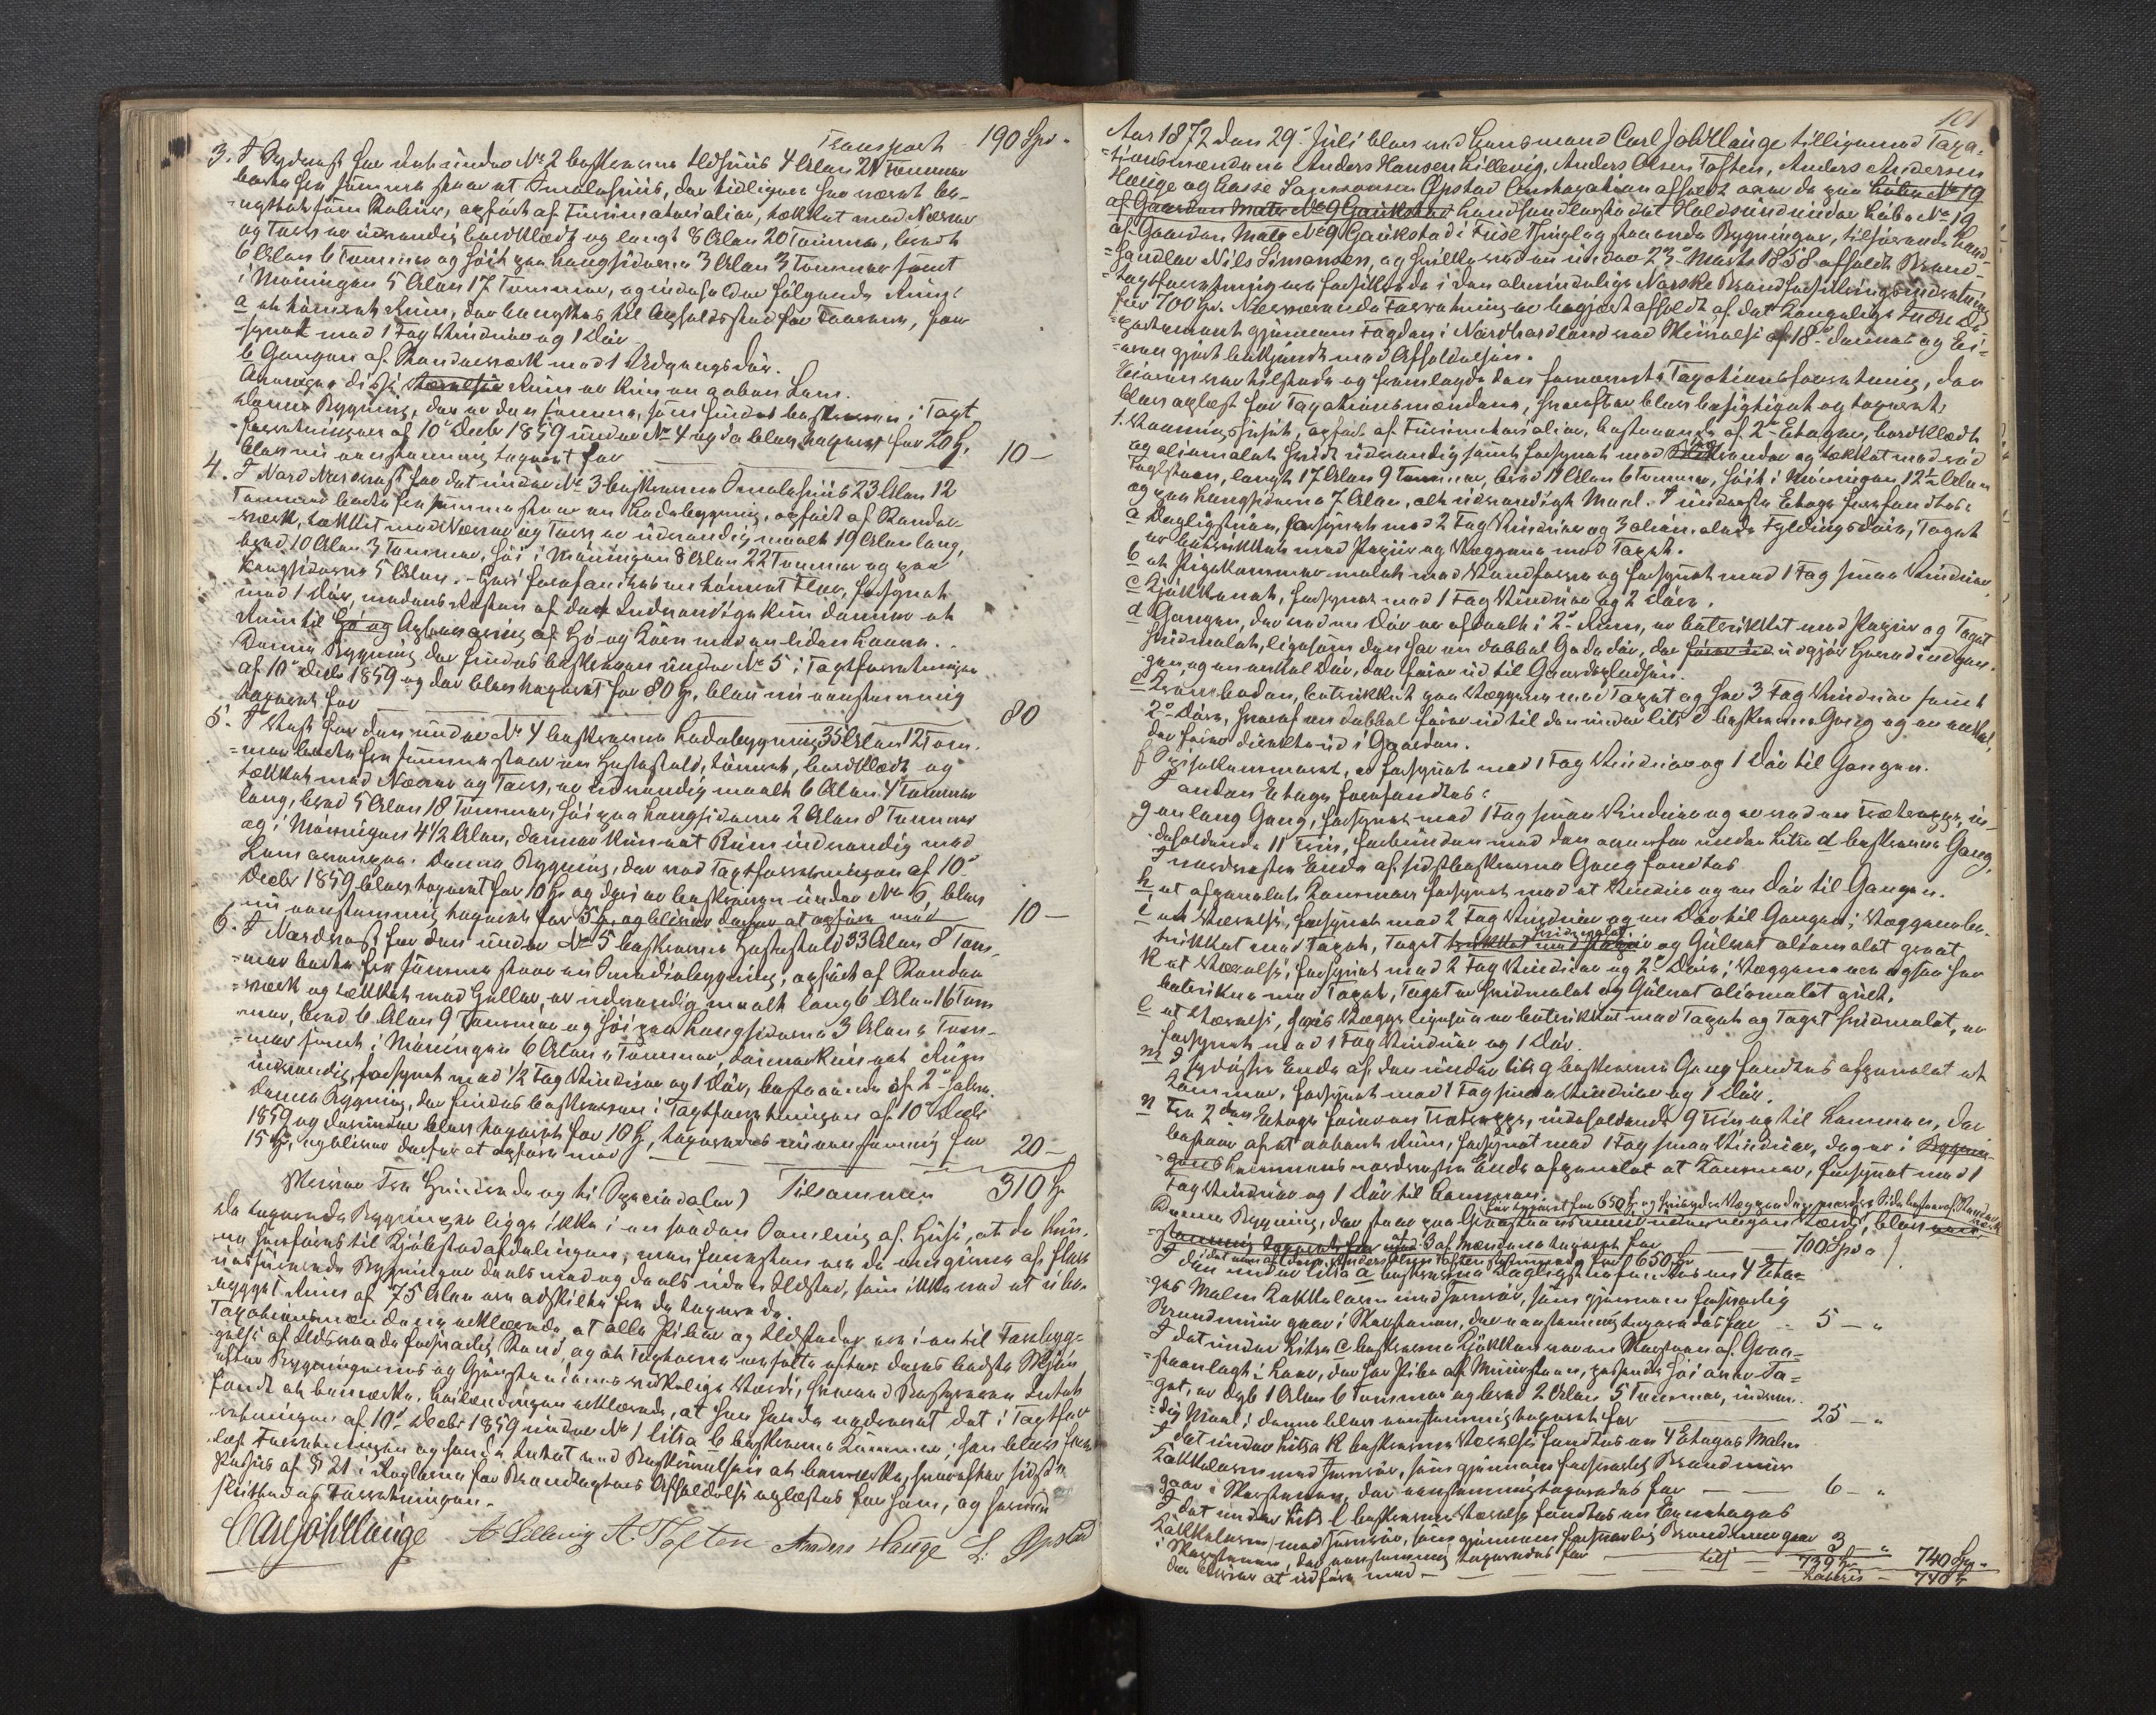 Transport 190 Spd.
3. I Sydvest for det under No 2 beskrevne Ildhuus 4 Alen 21 Tommer
borte fra samme staar et Smalehuus, der tidligere har været be-
nyttet som Stabur, opført af Furumaterialier, tækket med Næver
og Torv er udvendig bordklædt og langt 8 Alen 20 Tommer, bredt
6 Alen 6 Tommer og høit paa Langsiderne 3 Alen 3 Tommer samt
i Møningen 5 Alen 17 Tommer, og indeholder følgende Rum:
a et tømret Rum, der benyttes til Opholdssted for Faarene, for-
synet med 1 Fag Vinduer og 1 Dør
b Gangen af Standerværk med 1 Udgangsdør.
Ovenover disse Værelser Rum er kun en aaben Lem.
Denne Bygning, der er den samme, som findes beskreven i Taxt-
forretningen af 10de Decbr 1859 under No 4 og da blev taxeret for 20 Spd,
blev nu eenstemmig taxeret for 10 -
4. I Nord Nordvest for det under No 3 beskrevne Smalehuus 23 Alen 12
Tommer borte fra samme staar en Ladebygning, opført af Stander-
værk, tækket med Næver og Torv er udvendig maalt 19 Alen lang,
bred 10 Alen 3 Tommer, høi i Møningen 8 Alen 22 Tommer og paa
Langsiderne 5 Alen. - Heri forefandtes en tømret Flor, forsynet
med 1 Dør, medens Resten af det Indvendige kun danner et
Rum til Hø og Opbevaring af Hø og Korn med en liden Laave.
Denne Bygning der findes beskreven under No 5 i Taxtforretningen
af 10de Decbr 1859 og der blev taxeret for 80 Spd, blev nu eenstemmig
taxeret for 80
5. I Vest for den under No 4 beskrevne Ladebygning 35 Alen 12 Tom-
mer borte fra samme staar en Hestestald, tømret, bordklædt og
tækket med Næver og Torv, er udvendig maalt 6 Alen 4 Tommer
lang, bred 5 Alen 18 Tommer, høi paa Langsiderne 2 Alen 8 Tommer
og i Møningen 4 1/2 Alen, danner kun eet Rum indvendig med
Lem ovenpaa. Denne Bygning, der ved Taxtforretningen af 10de
Decbr 1859 blev taxeret for 10 Spd og deri er beskreven under No 6, blev
nu eenstemmig taxeret for 5 Spd og bliver derfor at opføre med 10 -
6. I Nordvest for den under No 5 beskrevne Hestestald 33 Alen 8 Tom-
mer borte fra samme staar en Smediebygning, opført af Stander-
værk og tækket med Heller, er udvendig maalt lang 6 Alen 16 Tom
mer, bred 6 Alen 9 Tommer og høi paa Langsiderne 3 Alen " Tom-
mer samt i Møningen 6 Alen " Tommer, danner kun eet Rum
indvendig, forsynet med 1/2 Fag Vinduer og 1 Dør, bestaaende af 2de Halve.
Denne Bygning, der findes beskreven i Taxtforretningen af 10de Decbr
1859 og derunder blev taxeret for 10 Spd, taxeredes nu eenstemmig for
15 Spd, og bliver derfor at opføre med 20 -
Skriver Tre Hundrede og ti Speciedaler) Tilsammen 310 Spd
De taxerede Bygninger ligge ikke i en saadan Samling af Huse, at de kun-
ne henføres til Kjøbstadafdelingen, men forresten ere de omgivne af flere
uassurerede Bygninger deels med og deels uden Ildsted, som ikke ved et ube-
bygget Rum af 75 Alen ere adskilte fra de taxerede.
Taxationsmændene erklærede, at alle Piber og Ildsteder ere i en til Forebyg-
gelse af Ildsvaade forsvarlig Stand, og at Taxterne ere satte efter deres bedste Skjøn
efter Bygningernes og Gjenstandenes virkelige Værdi, hvorved Bestyreren Intet
fandt at bemærke. Leilændingen erklærede, at han havde nedrevet det i Taxtfor-
retningen af 10de Decbr 1859 under No 1 litra b beskrevne Kammer; han blev fore-
læst Forretningen og havde Intet ved Beskrivelsen at bemærke, hvorefter sidste
Passus af § 21 i Reglerne for Brandtaxters Afholdelse oplæstes for ham, og hermed
sluttedes Forretningen.
Carl Joh Hauge A. Lillevig A. Toften Anders Hauge L. Opstad
101
Aar 1872 den 29de Juli blev ved Lensmand Carl Joh Hauge tilligemed Taxa-
tionsmændene Anders Hansen Lillevig, Anders Olsen Toften, Anders Andersen
Hauge og Lasse Larsen Opstad Omtaxation afholdt over de paa Løbe No 19
af Gaarden Matr No 9 Gaukstad Landhandlerstedet Holdsund under Løbe No 19
af Gaarden Matr No 9 Gaukstad i Fuse Thinglag staaende Bygninger, tilhørende Land-
handler Nils Simonsen, og hvilke ved en under 23de Marts 1858 afholdt Brand-
taxtforretning ere forsikrede i den almindelige Norske Brandforsikringsindretning
for 700 Spd. Nærværende Forretning er begjært afholdt af det Kongelige Indre De-
partement gjennem Fogden i Nordhordland ved Skrivelse af 18de dennes og Ei-
eren gjort bekjendt med Afholdelsen.
Eieren var tilstede og fremlagde den fornævnte Taxationsforretning, der
blev oplæst for Taxationsmændene, hvorefter blev besigtiget og taxeret:
1. Vaaningshuset, opført af Furumaterialier, bestaaende af 2de Etager, bordklædt
og oliemalet hvidt udvendig samt forsynet med Tagrender og tækket med rød
Taglsteen, langt 17 Alen 9 Tommer, bred 11 Alen 6 Tommer, høit i Møningen 12 1/2 Alen
og paa Langsiderne 7 Alen, alt udvendigt Maal. I underste Etage forefandtes:
a Dagligstuen, forsynet med 2 Fag Vinduer og 3 oliemalede Fyldingsdøre, Taget
er betrukket med Papir og Væggene med Tapet.
b et Pigekammer malet med Vandfarve og forsynet med 1 Fag smaa Vinduer,
c Kjøkkenet, forsynet med 1 Fag Vinduer og 2 Døre.
d Gangen, der ved en Dør er afdeelt i 2de Rum, er betrukket med Papir og Taget
hvidmalet, ligesom den har en dobbel Gadedør, der fører ud udgjør Hovedindgan-
gen og en enkel Dør, der fører ud til Gaardspladsen.
e Krambaden, betrukket paa Væggene med Tapet og har 3 Fag Vinduer samt
2de Døre, hvoraf en dobbel fører ud til den under litr d beskrevne Gang og en enkel,
der fører direkte ud i Gaarden.
f Spisekammeret, er forsynet med 1 Fag Vinduer og 1 Dør til Gangen.
I anden Etage forefandtes:
g en lang Gang, forsynet med 1 Fag smaa Vinduer og er ved en Trætrappe, in-
deholdende 11 Trin, forbunden med den ovenfor under Litra d beskrevne Gang,
I nordvestre Ende af sidstbeskrevne Gang fandtes
h et afpanelet Kammer forsynet med et Vindue og en Dør til Gangen.
i et Værelse, forsynet med 2 Fag Vinduer og en Dør til Gangen; Væggene be-
hvidmalet
trukket med Tapet, Taget trukket med Papir og Gulvet oliemalet graat
k et Værelse, forsynet med 2 Fag Vinduer og 2de Døre; Væggene ere ogsaa her
betrukne med Tapet, Taget er hvidmalet og Gulvet oliemalet guult.
l et Værelse, hvis Vægge ligesaa er betrukket med Tapet og Taget hvidmalet, er
forsynet med 1 Fag Vinduer og 1 Dør.
m I sydøstre Ende af den under litr g beskrevne Gang fandtes afpanelet et
Kammer, forsynet med 1 Fag smaa Vinduer og 1 Dør.
n Fra 2den Etage fører en Trætrappe, indeholdende 9 Trin op til Lemmen, der
bestaar af et aabent Rum, forsynet med 1 Fag smaa Vinduer, dog er i Bygnin-
gens Lemmens nordvestre Ende afpanelet et Kammer, forsynet med 1
Fag Vinduer og 1 Dør til Lemmen.
Denne Bygning, der staar paa blev een-
stemmig taxeret for af 3 af Mændene taxeret for 700 Spd "
I den under litra a beskrevne Dagligstue fandtes en 4 Eta-
ges Malm Kakkelovn med Jernrør, som gjennem forsvarlig
Brandmuur gaar i Skorstenen, der eenstemmig taxeredes for 5 - "
I det under Litra c beskrevne Kjøkken var en Skorsteen af Graa-
steen lagt i Leer, der har Pibe af Muursteen, passende høi over Ta-
get, er dyb 1 Alen 6 Tommer og bred 2 Alen 5 Tommer, indven-
dig Maal; denne blev eenstemmig taxeret for 25 - "
I det under Litra k beskrevne Værelse fandtes en 4 Etages Malm
Kakkelovn med Jernrør, som gjennem forsvarlig Brandmuur
gaar i Skorstenen, der eenstemmig taxeredes for 6 - "
I det under Litr l beskrevne Værelse fandtes en Eenetages
Kakkelovn med Jernrør, som gjennem forsvarlig Brandmuur gaar
i Skorstenen, der eenstemmig taxeredes for 3 "
der bliver at udføre med tils 739 Spd 740 Spd "
Lateris 740 Spd